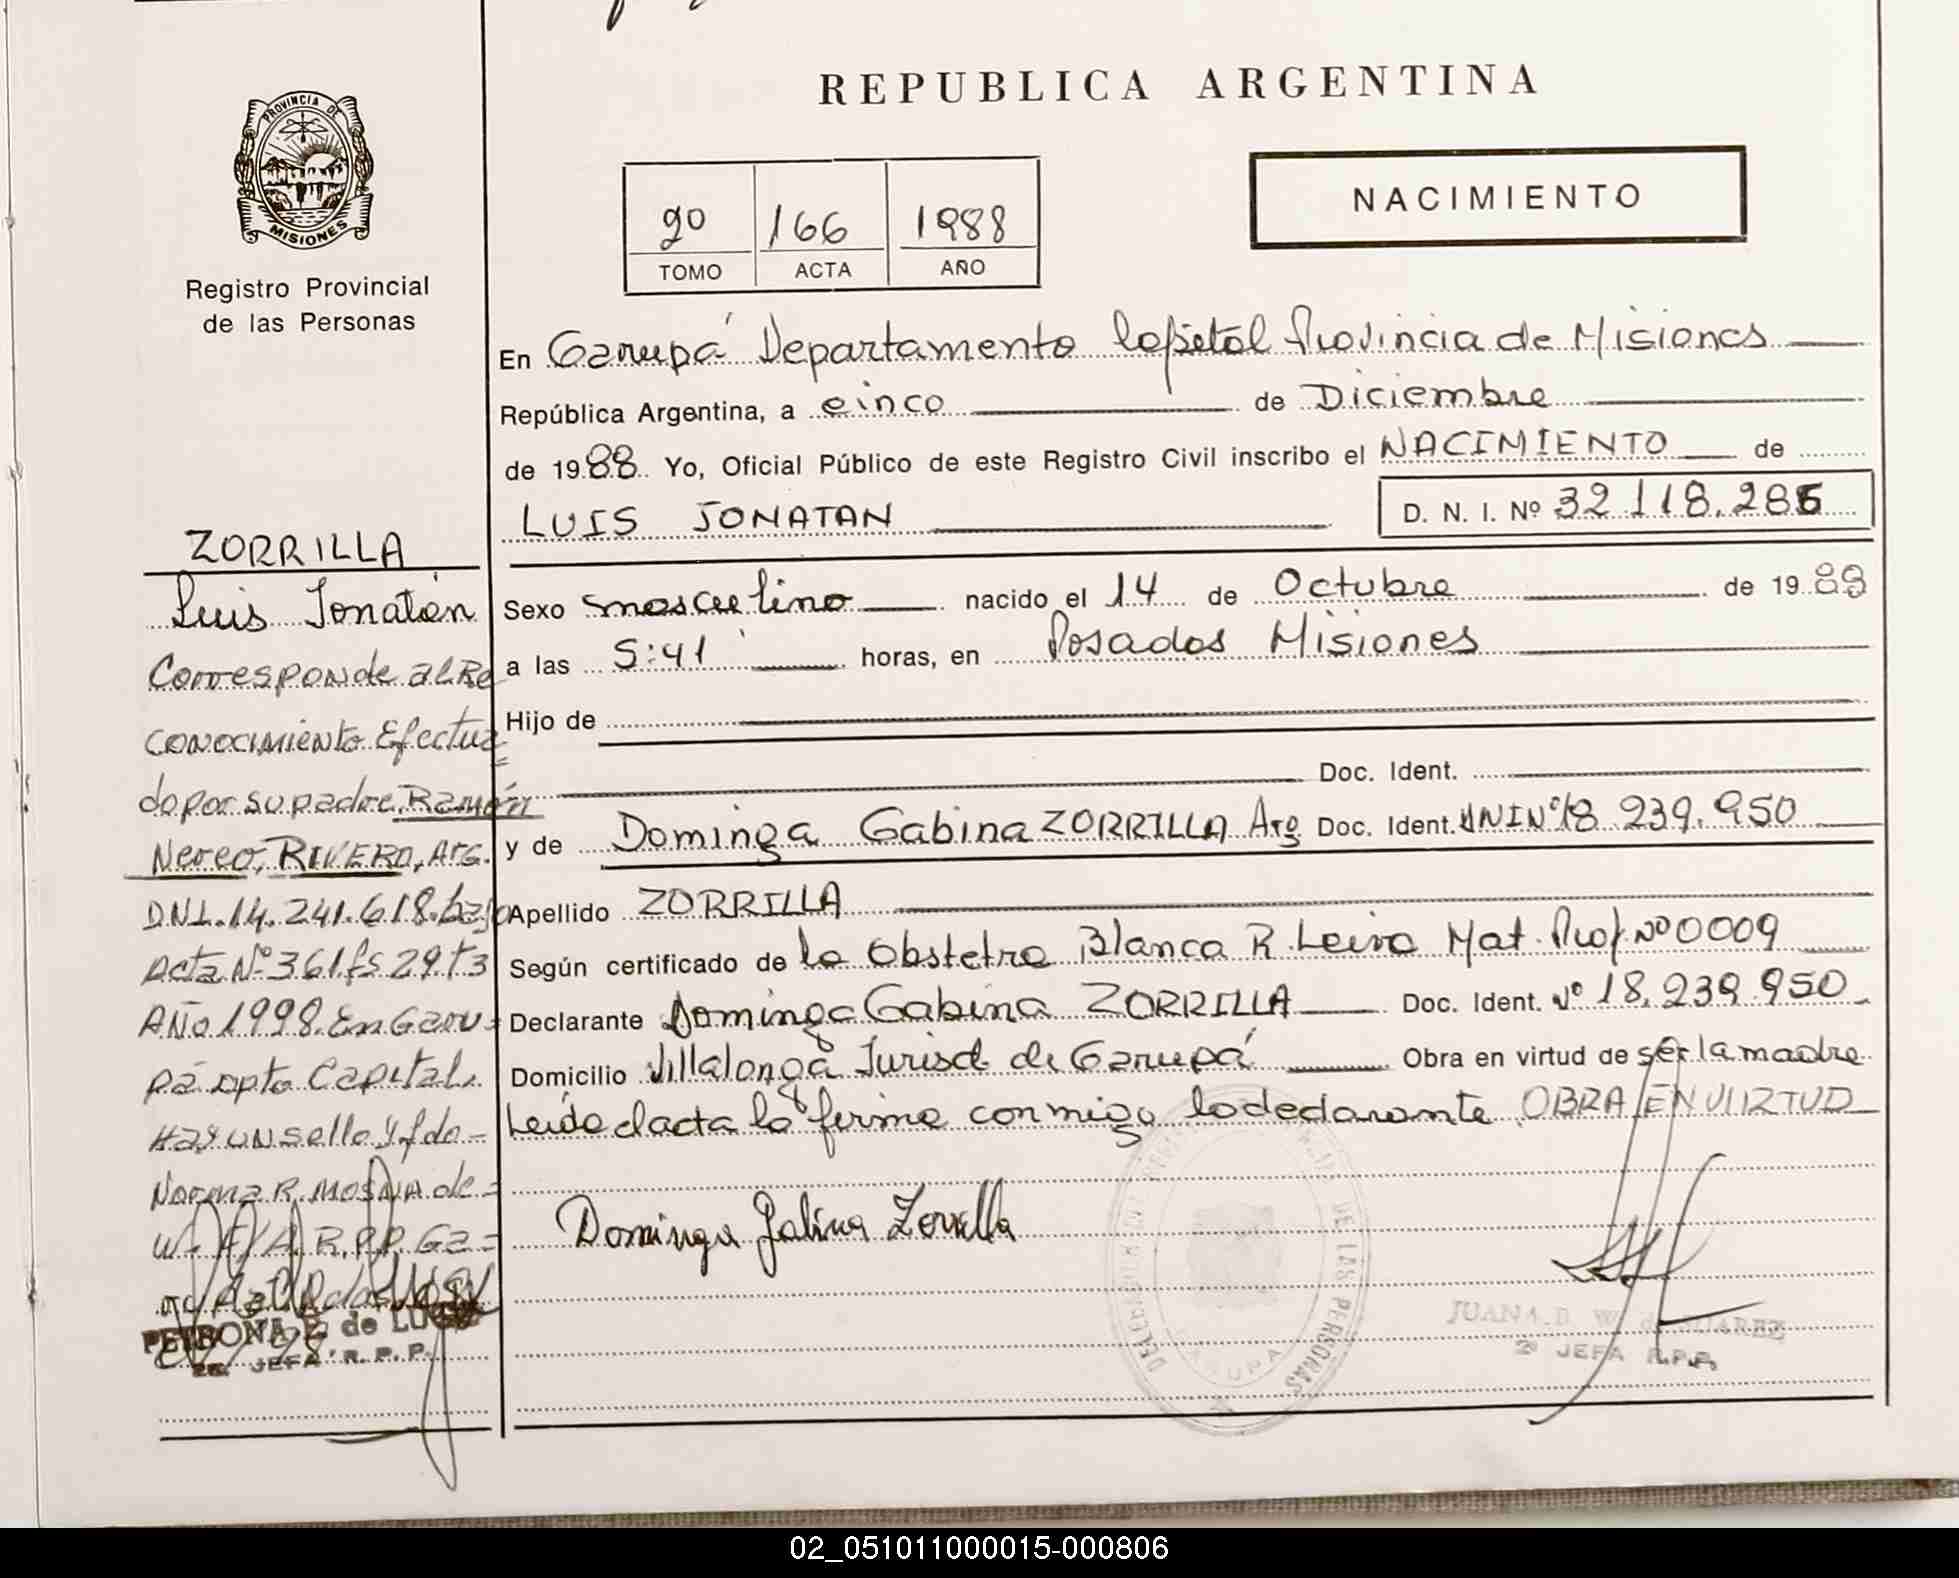 REPUBLICA ARGENTINA
PROVINCIA DE
MISIONES
Registro Provincial
de las Personas
2º 166 1988
TOMO ACTA AÑO
NACIMIENTO
En Garupá Departamento Capital Provincia de Misiones
República Argentina, a cinco de Diciembre
de 1988. Yo, Oficial Público de este Registro Civil inscribo el NACIMIENTO de
LUIS JONATAN D. N. I. Nº 32 118.286
Sexo masculino nacido el 14 de Octubre de 1988
a las 5:41 horas, en Posadas Misiones
Hijo de
Doc. Ident.
y de Dominga Gabina ZORRILLA Arg Doc. Ident. DNI Nº 18 239.950
Apellido ZORRILLA
Según certificado de la Obstetra Blanca R. Leiva Mat. Prof. Nº 0009
Declarante Dominga Gabina ZORRILLA Doc. Ident. Nº 18.239.950
Domicilio Villalonga Jurisd de Garupá Obra en virtud de ser la madre
Leída el acta la firma conmigo la declarante OBRA EN VIRTUD
Dominga Gabina Zorrilla
DE LAS PERSONAS
GARUPA
JUANA D. W. de SUAREZ
2º JEFA R.P.P.
ZORRILLA
Luis Jonatán
Corresponde al Re
conocimiento Efectua
=
do por su padre Ramón
Nereo, RIVERO, Arg.
D.N.I. 14.241.618. bajo
Acta Nº 361 fs 29 T3
Año 1998. En Garu=
pá Dpto Capital.
Hay un sello y fdo-
Norma R. MOSNA de=
W. F/A R.P.P. Ga=
PETRONA E. de LUGO
2a. JEFA R.P.P.
02_051011000015-000806